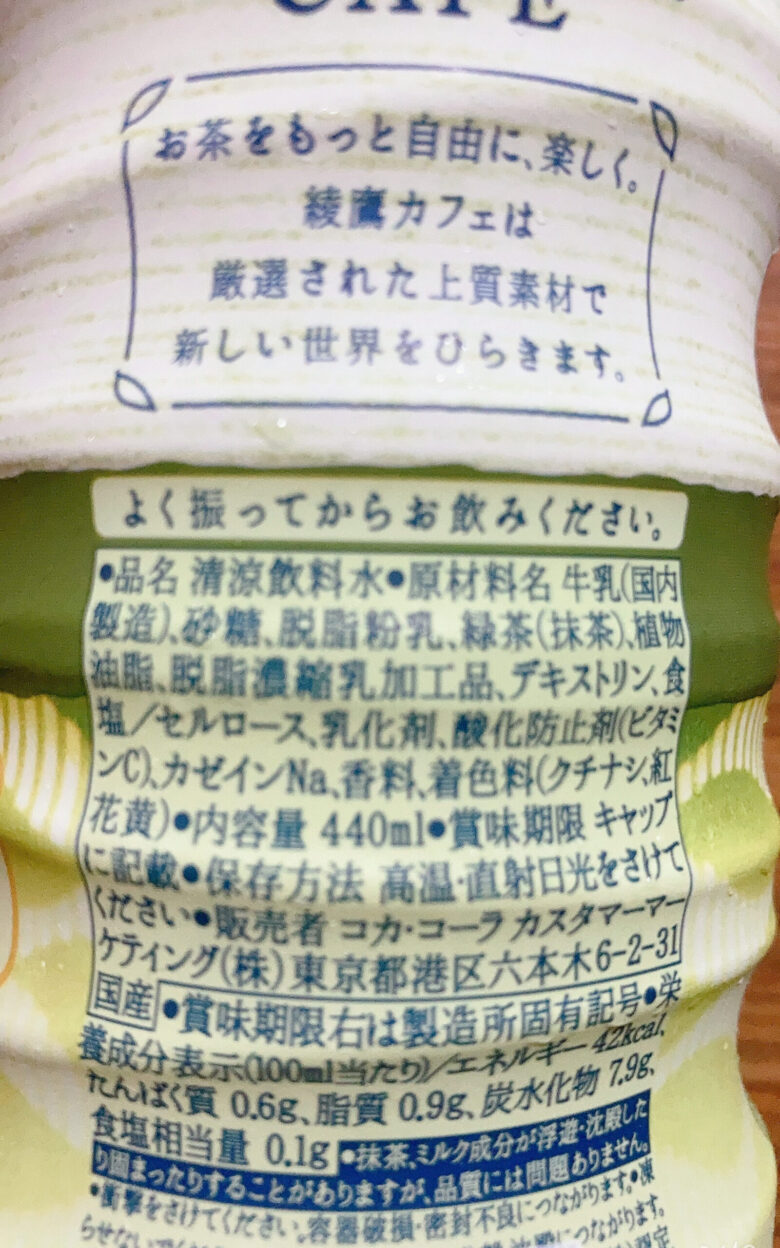 CAFE
お茶をもっと自由に、楽しく。
綾鷹カフェは
厳選された上質素材で
新しい世界をひらきます。
よく振ってからお飲みください。
●品名 清涼飲料水●原材料名 牛乳(国内
製造)、砂糖、脱脂粉乳、緑茶(抹茶)、植物
油脂、脱脂濃縮乳加工品、デキストリン、食
塩/セルロース、乳化剤、酸化防止剤(ビタミ
ンC)、カゼインNa、香料、着色料(クチナシ、紅
花黄)●内容量 440ml●賞味期限 キャップ
に記載●保存方法 高温・直射日光をさけて
ください●販売者 コカ・コーラ カスタマーマー
ケティング(株)東京都港区六本木6-2-31
国産●賞味期限右は製造所固有記号●栄
養成分表示(100ml当たり)/エネルギー 42kcal、
たんぱく質 0.6g、脂質 0.9g、炭水化物 7.9g、
食塩相当量 0.1g●抹茶、ミルク成分が浮遊・沈殿した
り固まったりすることがありますが、品質には問題ありません。
●衝撃をさけてください。容器破損・密封不良につながります。●凍
らせないでください につながります。